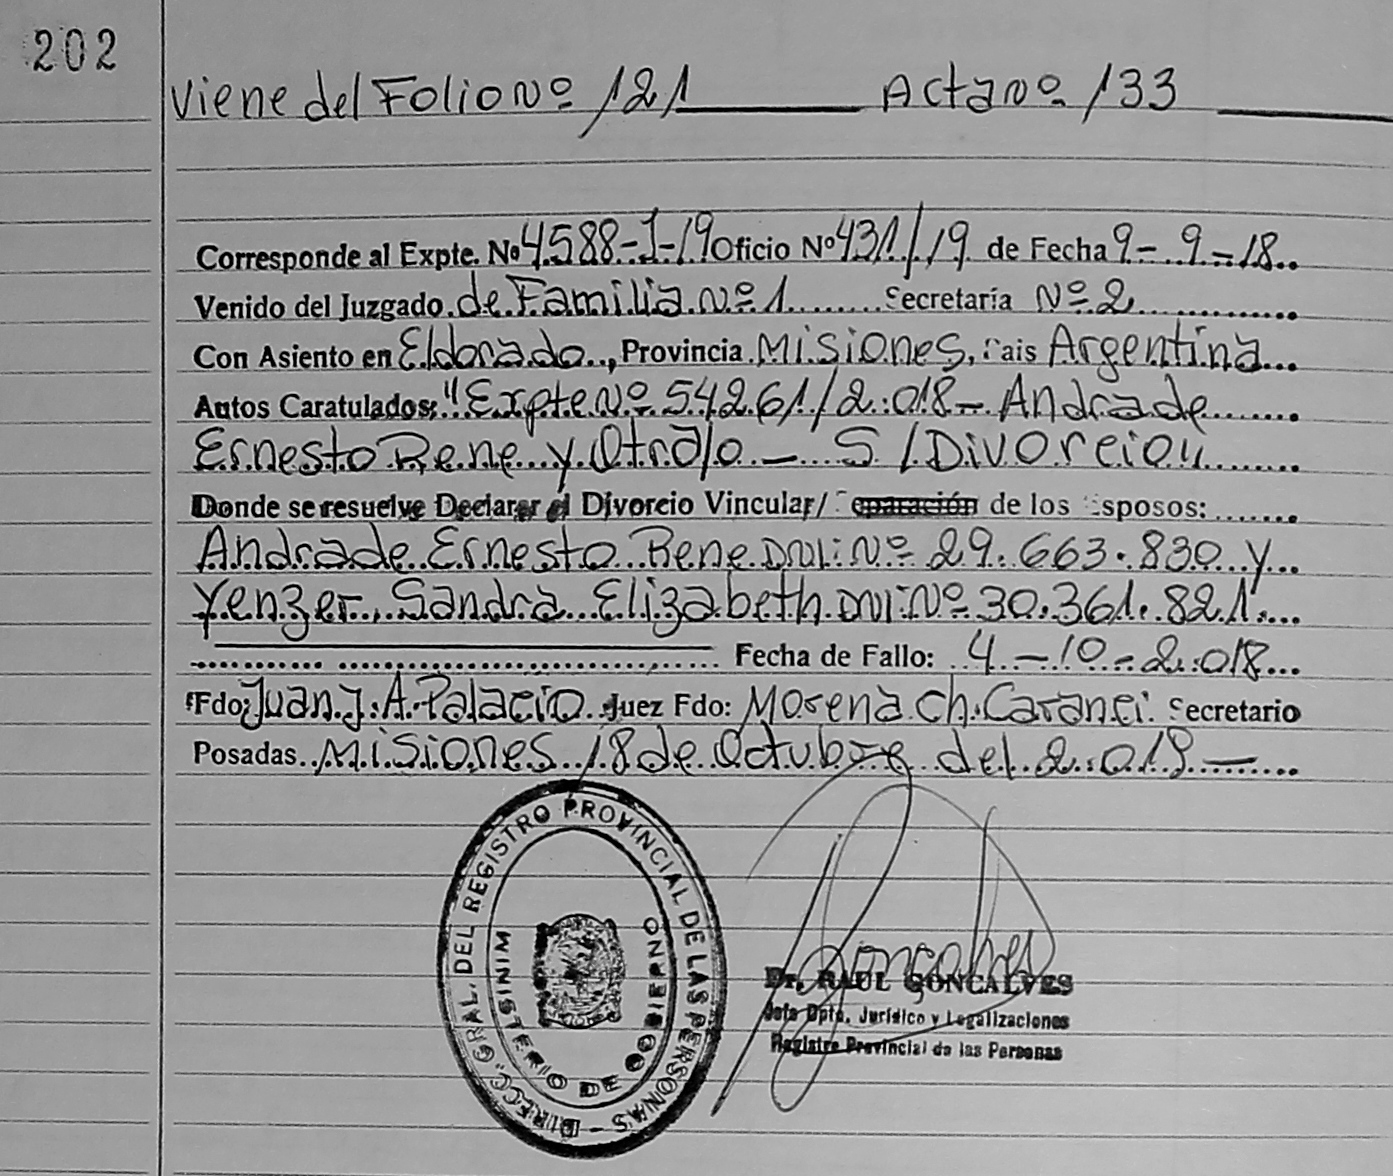 202
Viene del Folio Nº 121 Acta nº 133
Corresponde al Expte. Nº 4588-J-19 Oficio Nº 431/19 de Fecha 9-9-18..
Venido del Juzgado de Familia Nº 1 Secretaría Nº 2
Con Asiento en Eldorado, Provincia Misiones, Pais Argentina
Autos Caratulados: "Expte Nº 54261/2.018 - Andrade
Ernesto Rene y Otra/o - S/Divorcio"
Donde se resuelve Declarar el Divorcio Vincular/ Separación de los Esposos:
Andrade Ernesto Rene DNI: Nº 29.663.830 y
Yenzer, Sandra Elizabeth DNI: Nº 30.361.821.
Fecha de Fallo: 4-10-2.018
Fdo: Juan J. A. Palacio Juez Fdo: Morena Ch. Caranci. Secretario
Posadas. Misiones 18 de Octubre del 2.019 -
DIRECC. GRAL. DEL REGISTRO PROVINCIAL DE LAS PERSONAS -
MINISTERIO DE GOBIERNO
Goncalves
Dr. RAUL GONCALVES
Jefe Dpto. Jurídico y Legalizaciones
Registro Provincial de las Personas